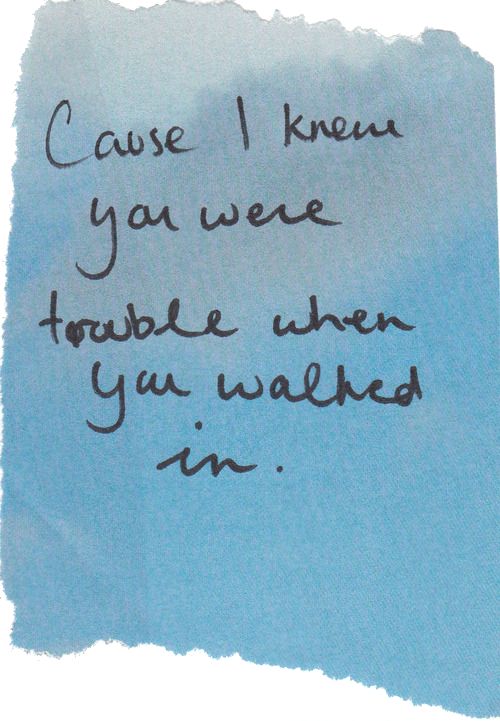 Cause I knew
you were
trouble when
you walked
in.